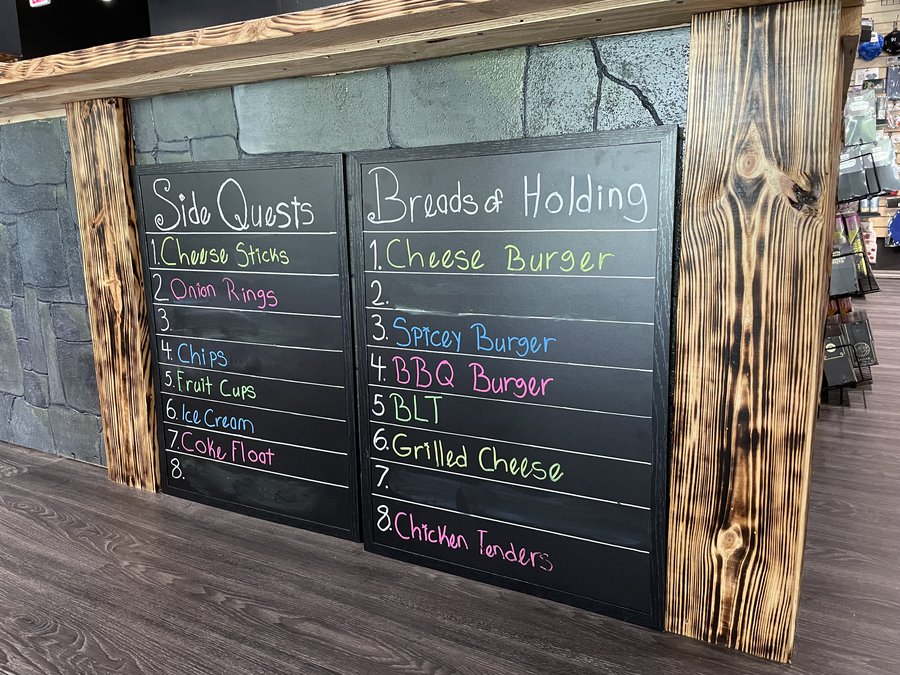 Side Quests
1. Cheese Sticks
2 Onion Rings
3.
4. Chips
5. Fruit Cups
6. Ice Cream
7. Coke Float
8.
Breads of Holding
1. Cheese Burger
2.
3. Spicey Burger
4. BBQ Burger
5 BLT
6. Grilled Cheese
7.
8. Chicken Tenders